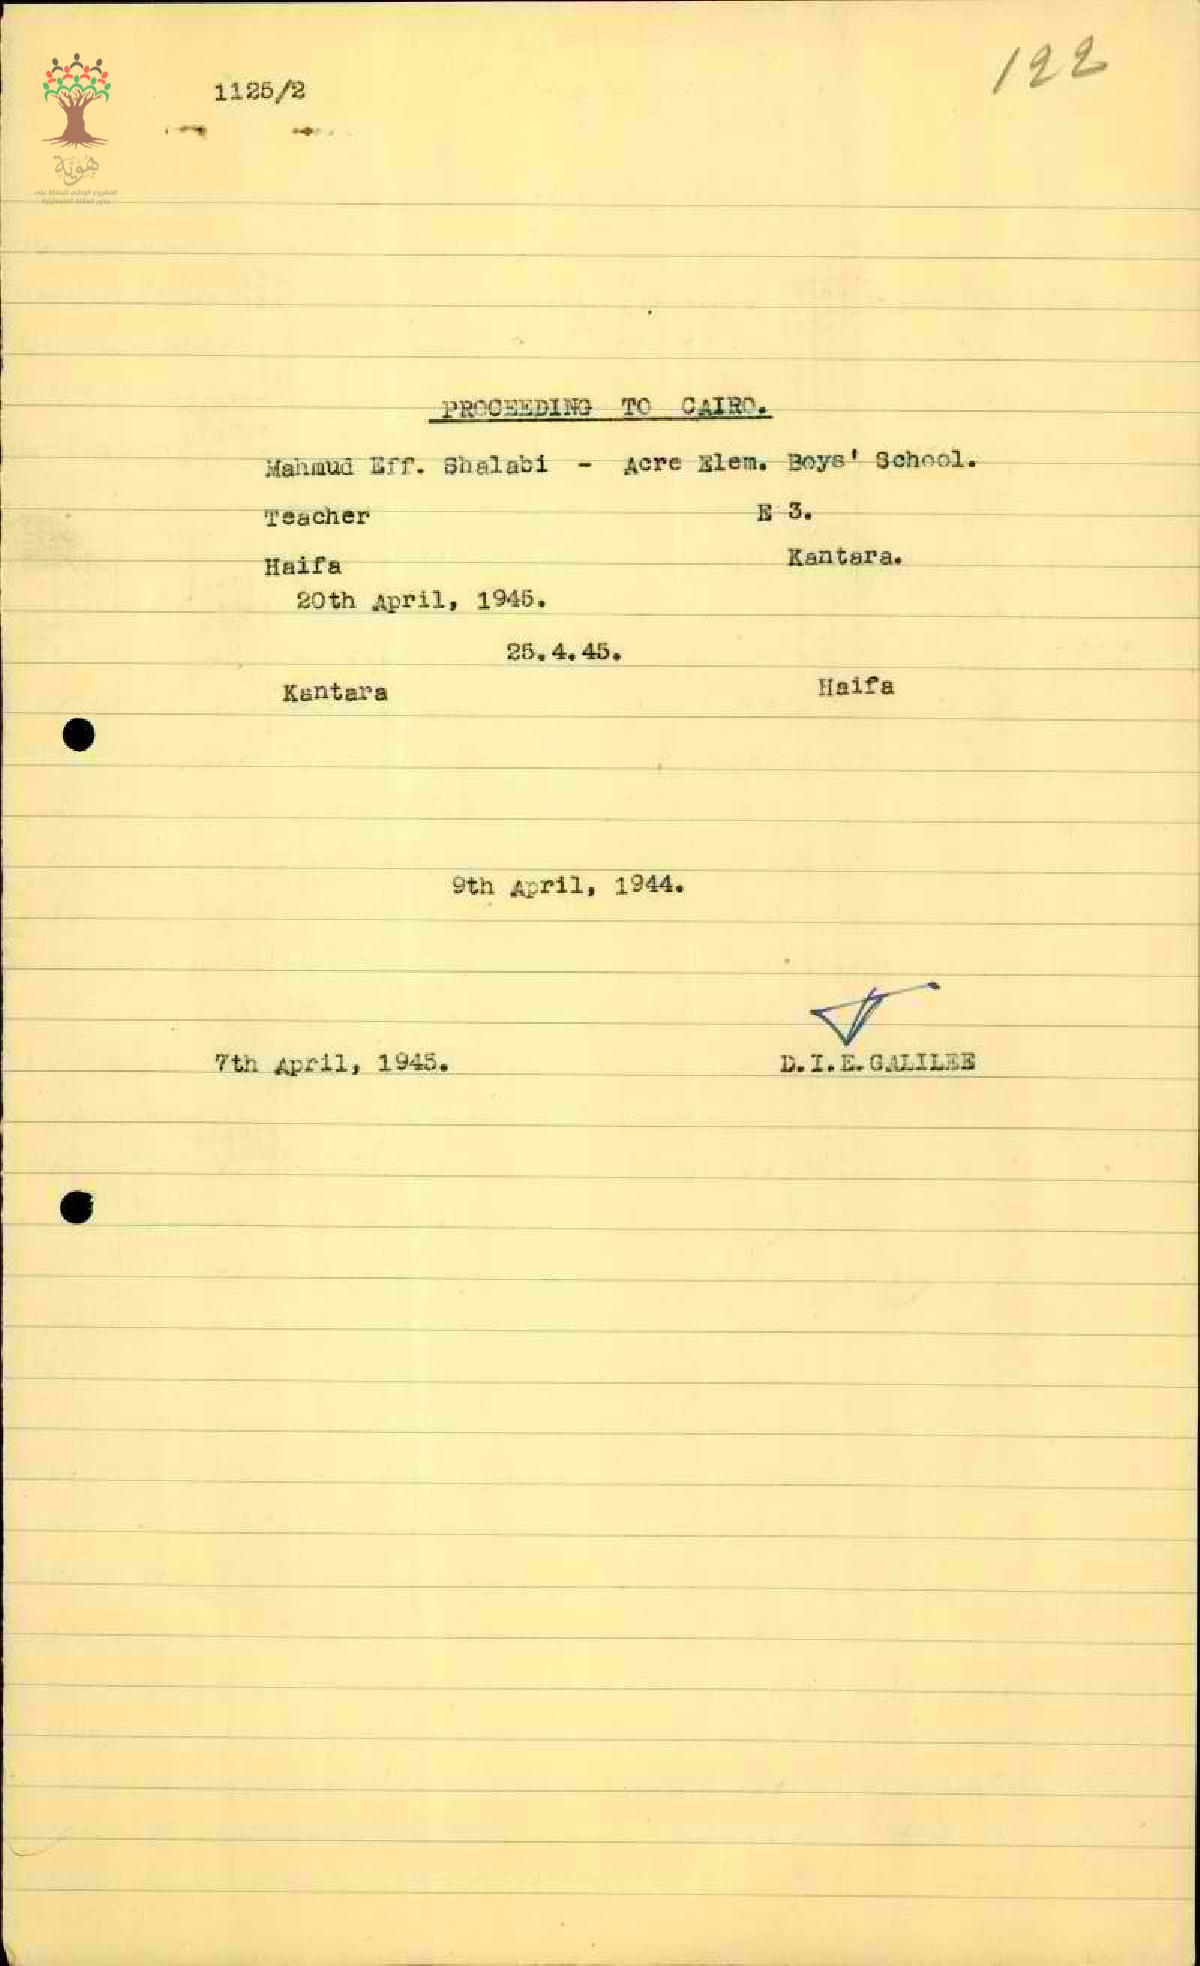 122
1125/2
هوية
المشروع الوطني للحفاظ على
جذور العائلة الفلسطينية
PROCEEDING TO CAIRO.
Mahmud Eff. Shalabi - Acre Elem. Boys' School.
Teacher E 3.
Haifa Kantara.
20th April, 1945.
25.4.45.
Kantara Haifa
9th April, 1944.
7th April, 1945. D.I.E.GALILEE